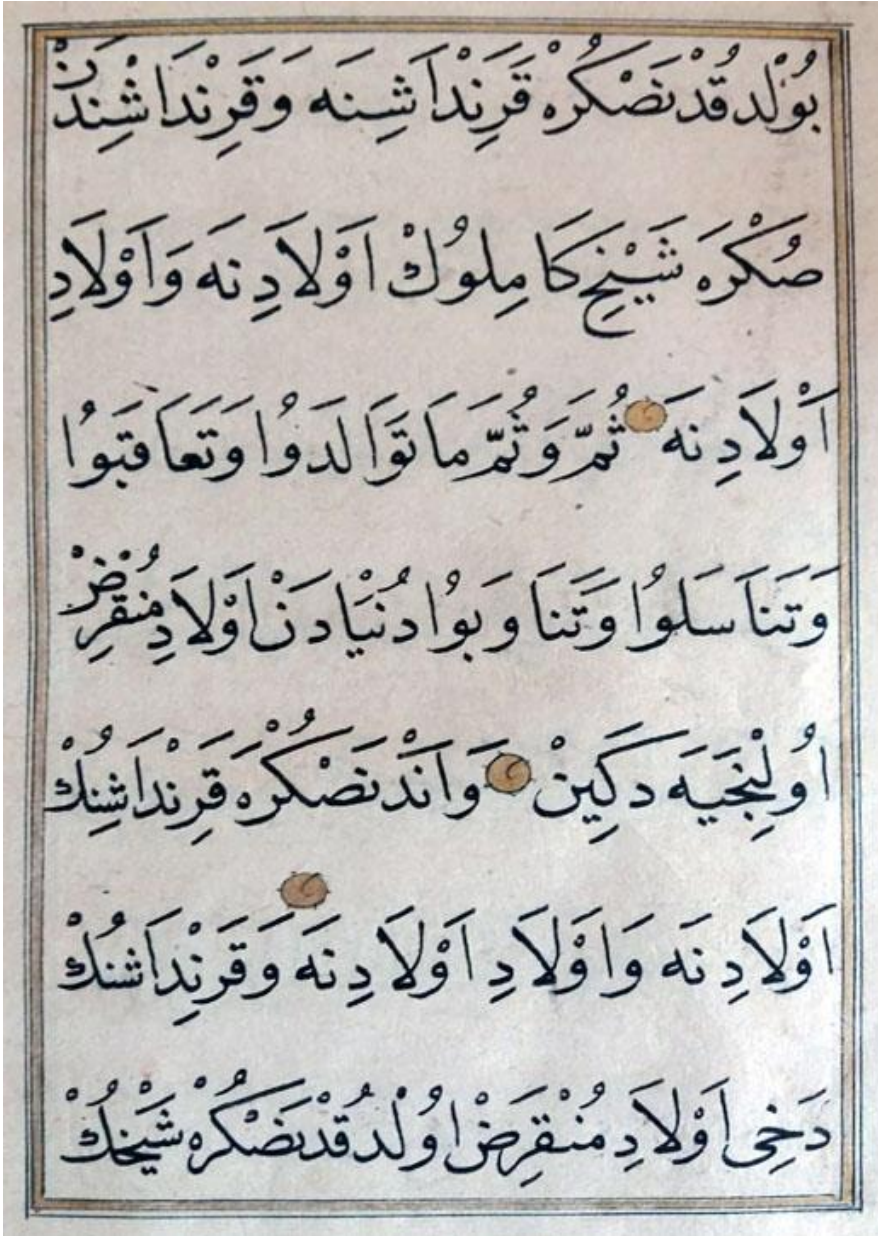 بُولْد قُدْنَصْكُرْه قَرِنْدَاشِنَه وَقَرِنْدَاشِنْدَنْ
صُكْرَه شَيْخِ كَامِلُوكْ اَوْلَادِنَه وَاَوْلَادِ
اَوْلَادِنَه ثُمَّ وَثُمَّ مَا تَوَالَدُوا وَتَعَاقَبُوا
وَتَنَاسَلُوا وَتَنَا وَبُوا دُنْيَادَنْ اَوْلَادِ مُنْقَرِضْ
اُولِنْجَيَه دَكِينْ وَاَنْدَنْصُكْرَه قَرِنْدَاشِنُكْ
اَوْلَادِنَه وَاَوْلَادِ اَوْلَادِنَه وَقَرِنْدَاشنُكْ
دَخِى اَوْلَادِ مُنْقَرِضْ اُولْد قُدْنَصْكُرْه شَيْخُكْ